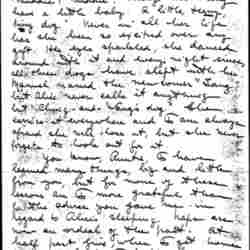 have a little baby. A little Teng-
ling dog. Never in all her life
has she been so excited over any
gift. Her eyes sparkled, she danced
around with it and every night since
all three dogs have slept with her
Marian named the new comer "Fang"
but Alice Ann calls it anything
but "Ching-and-Wang's dog". She
carries it everywhere and I am always
afraid she will lose it, but she never
forgets to look out for it.
You know Auntie I have
learned many things, big and little
from you, but for none of these
favors am I more grateful than
for the advice you gave me in
regard to Alice's sleeping. Naps are
now an ordeal of the past. At
half past five when to get